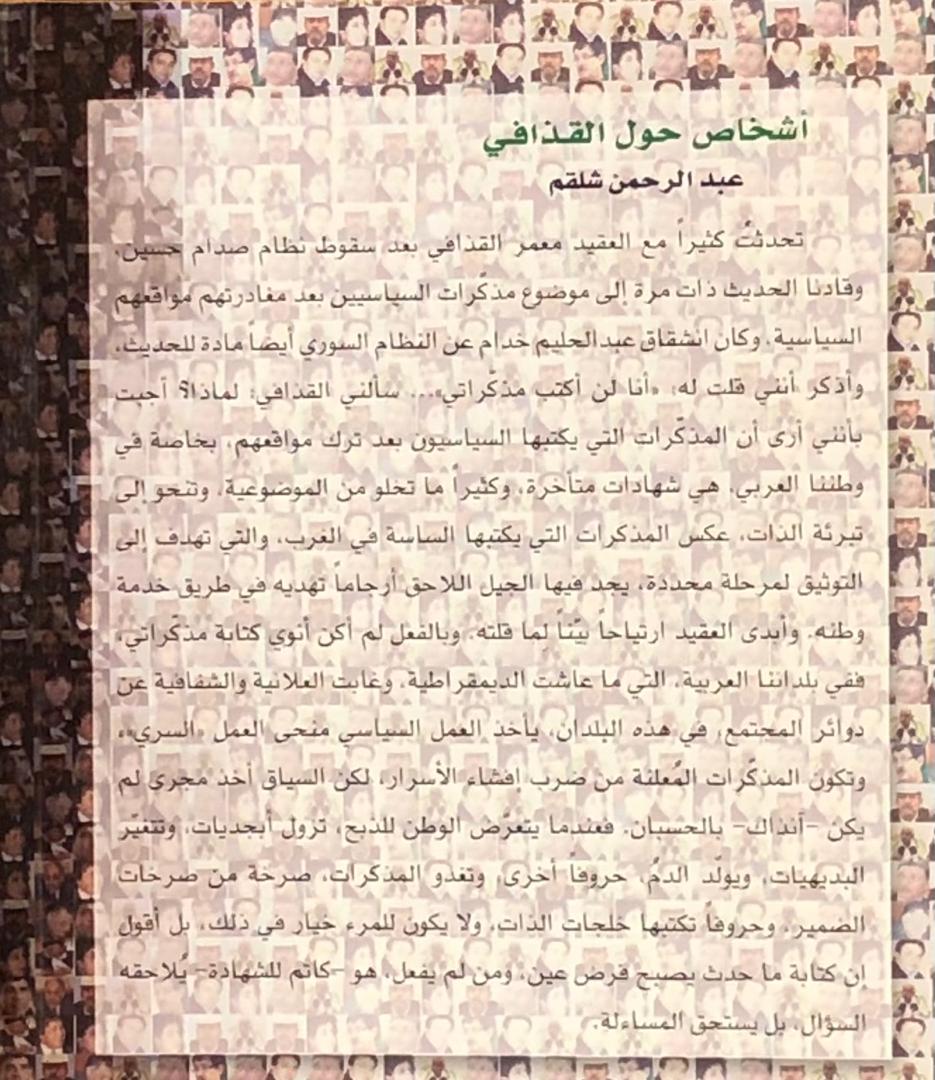 أشخاص حول القذافي
عبد الرحمن شلقم
تحدثتُ كثيراً مع العقيد معمر القذافي بعد سقوط نظام صدام حسين،
وقادنا الحديث ذات مرة إلى موضوع مذكّرات السياسيين بعد مغادرتهم مواقعهم
السياسية، وكان انشقاق عبدالحليم خدام عن النظام السوري أيضاً مادة للحديث،
وأذكر أنني قلت له: «أنا لن أكتب مذكّراتي»... سألني القذافي: لماذا؟ أجبت
بأنني أرى أن المذكّرات التي يكتبها السياسيون بعد ترك مواقعهم، بخاصة في
وطننا العربي، هي شهادات متأخرة، وكثيراً ما تخلو من الموضوعية، وتنحو إلى
تبرئة الذات، عكس المذكرات التي يكتبها الساسة في الغرب، والتي تهدف إلى
التوثيق لمرحلة محددة، يجد فيها الجيل اللاحق أرجاماً تهديه في طريق خدمة
وطنه. وأبدى العقيد ارتياحاً بيّناً لِما قلته. وبالفعل لم أكن أنوي كتابة مذكّراتي،
ففي بلداننا العربية، التي ما عاشت الديمقراطية، وغابت العلانية والشفافية عن
دوائر المجتمع، في هذه البلدان، يأخذ العمل السياسي منحى العمل «السري»،
وتكون المذكّرات المُعلنة من ضرب إفشاء الأسرار، لكن السياق أخذ مجرى لم
يكن -آنذاك- بالحسبان. فعندما يتعرّض الوطن للذبح، تزول أبجديات، وتتغيّر
البديهيات، ويولّد الدمُ، حروفاً أخرى، وتغدو المذكرات، صرخة من صرخات
الضمير، وحروفاً تكتبها خلجات الذات، ولا يكون للمرء خيار في ذلك، بل أقول
إن كتابة ما حدث يصبح فرض عين، ومن لم يفعل، هو -كاتم للشهادة- يُلاحقه
السؤال، بل يستحق المساءلة.